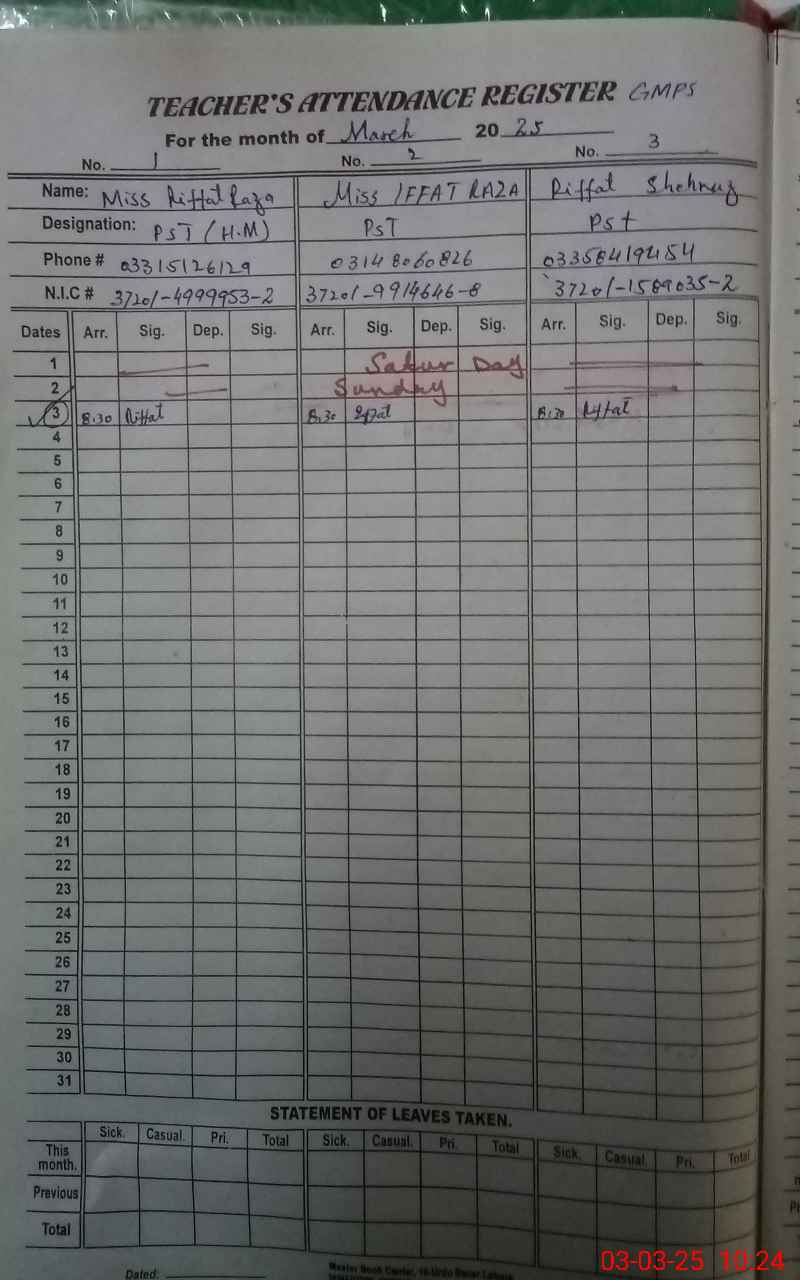 TEACHER'S ATTENDANCE REGISTER GMPS
For the month of March 20 25
No. 1 No. 2 No. 3
Name: Miss Riffat Raza Miss IFFAT RAZA Riffat Shehnaz
Designation: PST (H.M) PST PST
Phone # 03315126129 03148060826 03358419454
N.I.C # 37201-4999953-2 37201-9914646-8 37201-1589035-2
Dates Arr. Sig. Dep. Sig. Arr. Sig. Dep. Sig. Arr. Sig. Dep. Sig.
1 Satur Day
2 Sunday
3 8:30 Riffat 8:30 Iffat 8:30 Riffat
4
5
6
7
8
9
10
11
12
13
14
15
16
17
18
19
20
21
22
23
24
25
26
27
28
29
30
31
STATEMENT OF LEAVES TAKEN.
Sick. Casual. Pri. Total Sick. Casual. Pri. Total Sick. Casual. Pri. Total
This month.
Previous
Total
Dated:
03-03-25 10:24